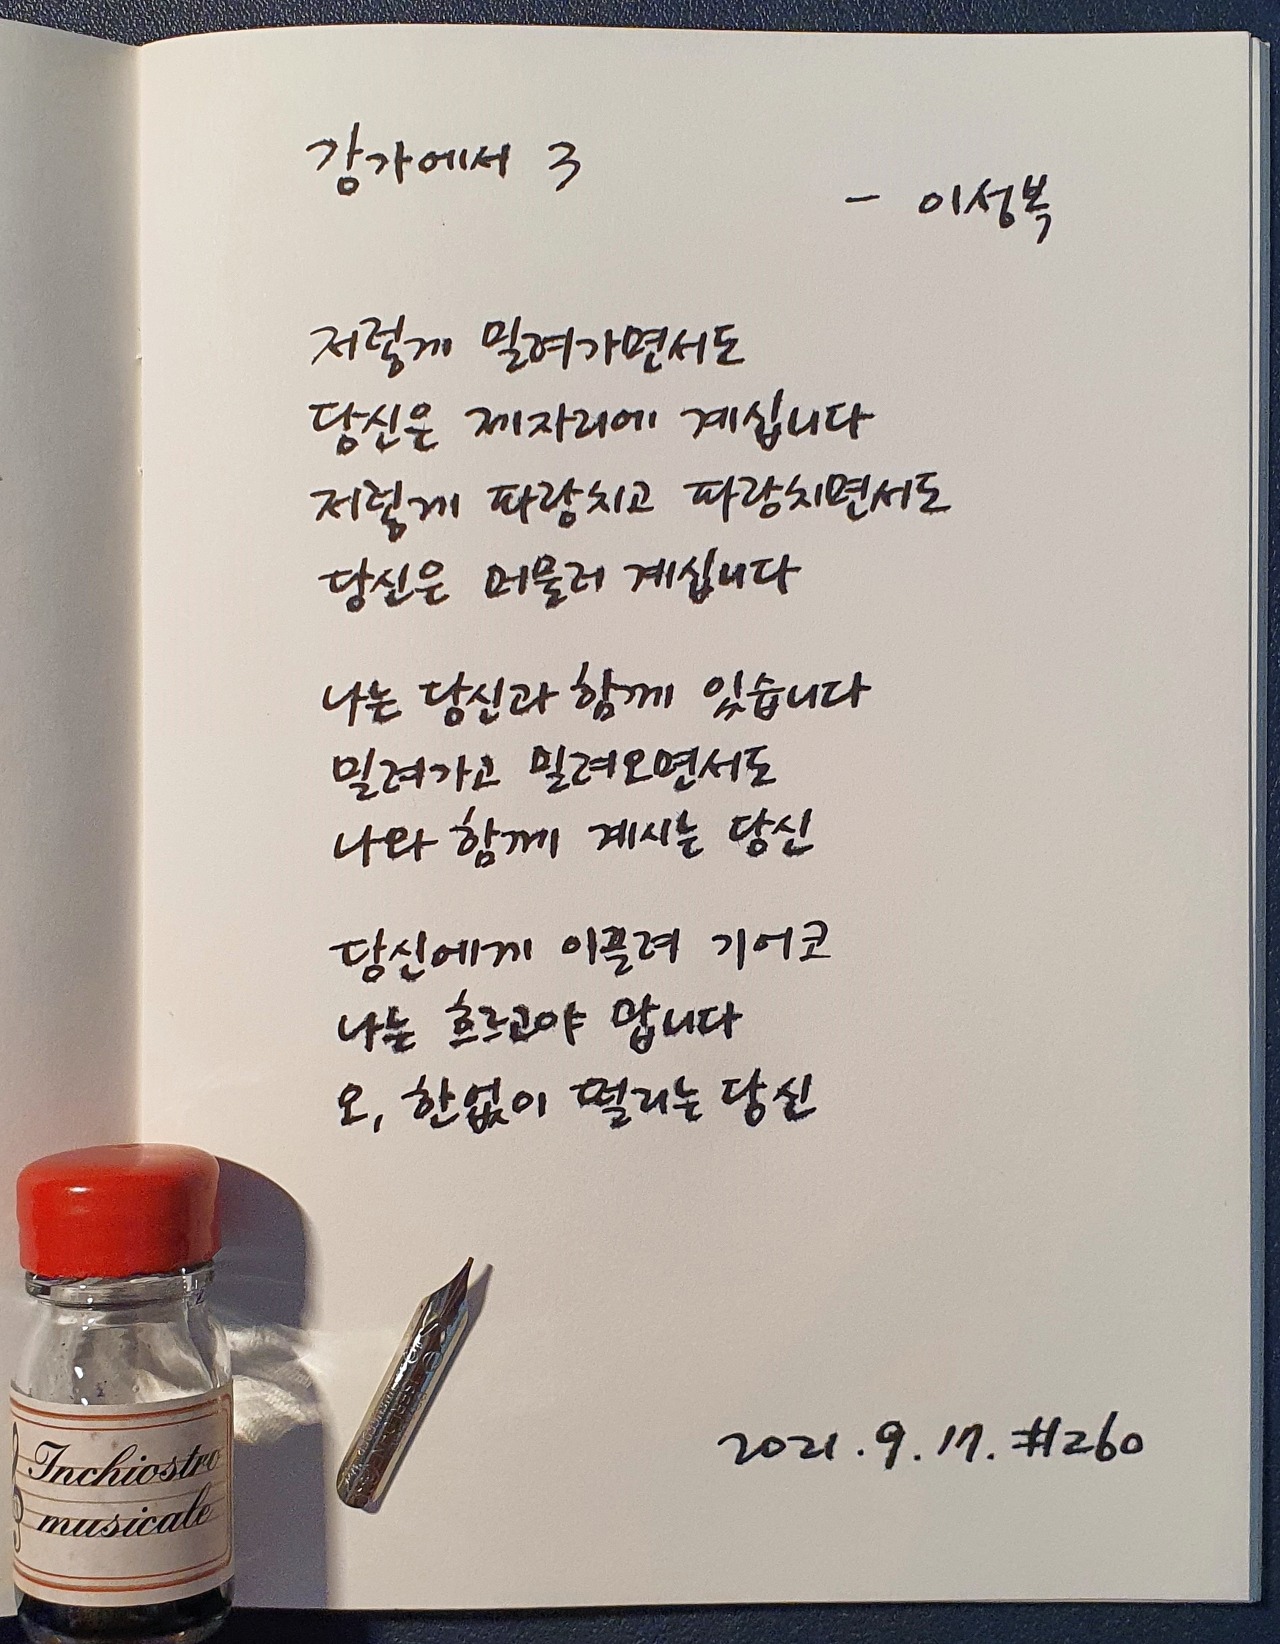 강가에서 3
- 이성복
저렇게 밀려가면서도
당신은 제자리에 계십니다
저렇게 파랑치고 파랑치면서도
당신은 머물러 계십니다
나는 당신과 함께 있습니다
밀려가고 밀려오면서도
나와 함께 계시는 당신
당신에게 이끌려 기어코
나는 흐르고야 맙니다
오, 한없이 떨리는 당신
2021.9.17. #260
Inchiostro
musicale